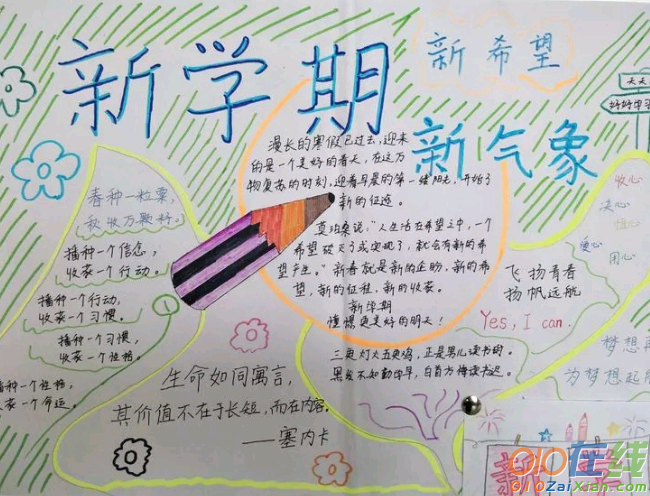 新学期
新希望
新气象
天天
好好学习
漫长的寒假已过去,迎来
的是一个美好的春天,在这万
物复苏的时刻,迎着早晨的第一缕阳光,开始了
新的征途。
莫泊桑说:“人生活在希望之中,一个
希望破灭了或实现了,就会有新的希
望产生。”新春就是新的企盼,新的希
望,新的征程,新的收获。
新学期
憧憬更美好的明天!
三更灯火五更鸡,正是男儿读书时。
黑发不知勤学早,白首方悔读书迟。
春种一粒粟,
秋收万颗籽。
播种一个信念,
收获一个行动。
播种一个行动,
收获一个习惯。
播种一个习惯,
收获一个性格。
播种一个性格,
收获一个命运。
生命如同寓言,
其价值不在于长短,而在内容。
——塞内卡
收心
决心
恒心
爱心
用心
飞扬青春
扬帆远航
Yes, I can.
梦想再
为梦想起航
新
学
010在线
010ZaiXian.com